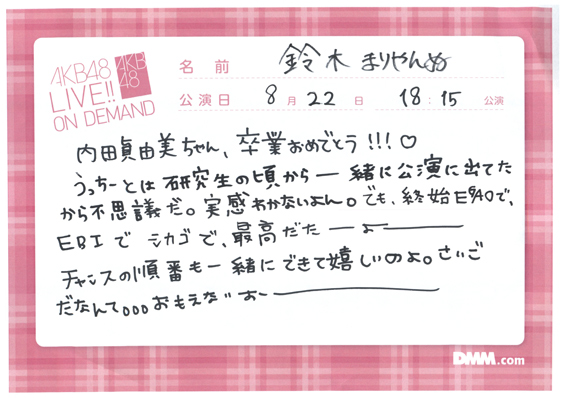 AKB48
LIVE!!
ON DEMAND
AKB
48
名前 鈴木まりやんぬ
公演日 8月22日 18:15公演
内田眞由美ちゃん、卒業おめでとう!!!♡
うっちーとは研究生の頃から一緒に公演に出てた
から不思議だ。実感わかないよん。でも、終始で、
EBIで シカゴで、最高だたーよー
チャンスの順番も一緒にできて嬉しいのよ。さいご
だなんて。。。おもえないおー
DMM.com